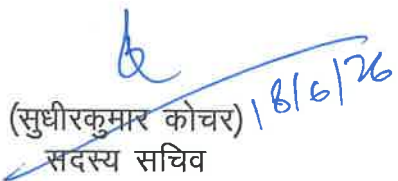 (सुधीरकुमार कोचर) 18/6/26
सदस्य सचिव